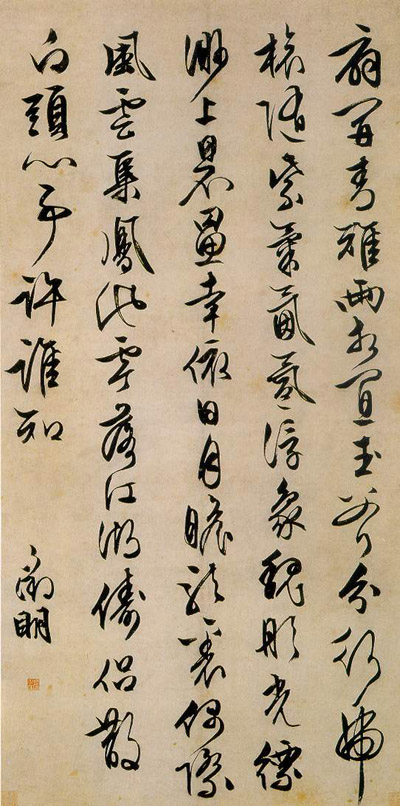 扇開青雉兩相宜玉斧分行虎
旅隨紫氣氤氳浮象魏彤光縹
渺上罘罳幸依日月瞻龍袞偶際
風雲集鳳池零落江湖儔侶散
白頭心事許誰知
徵明